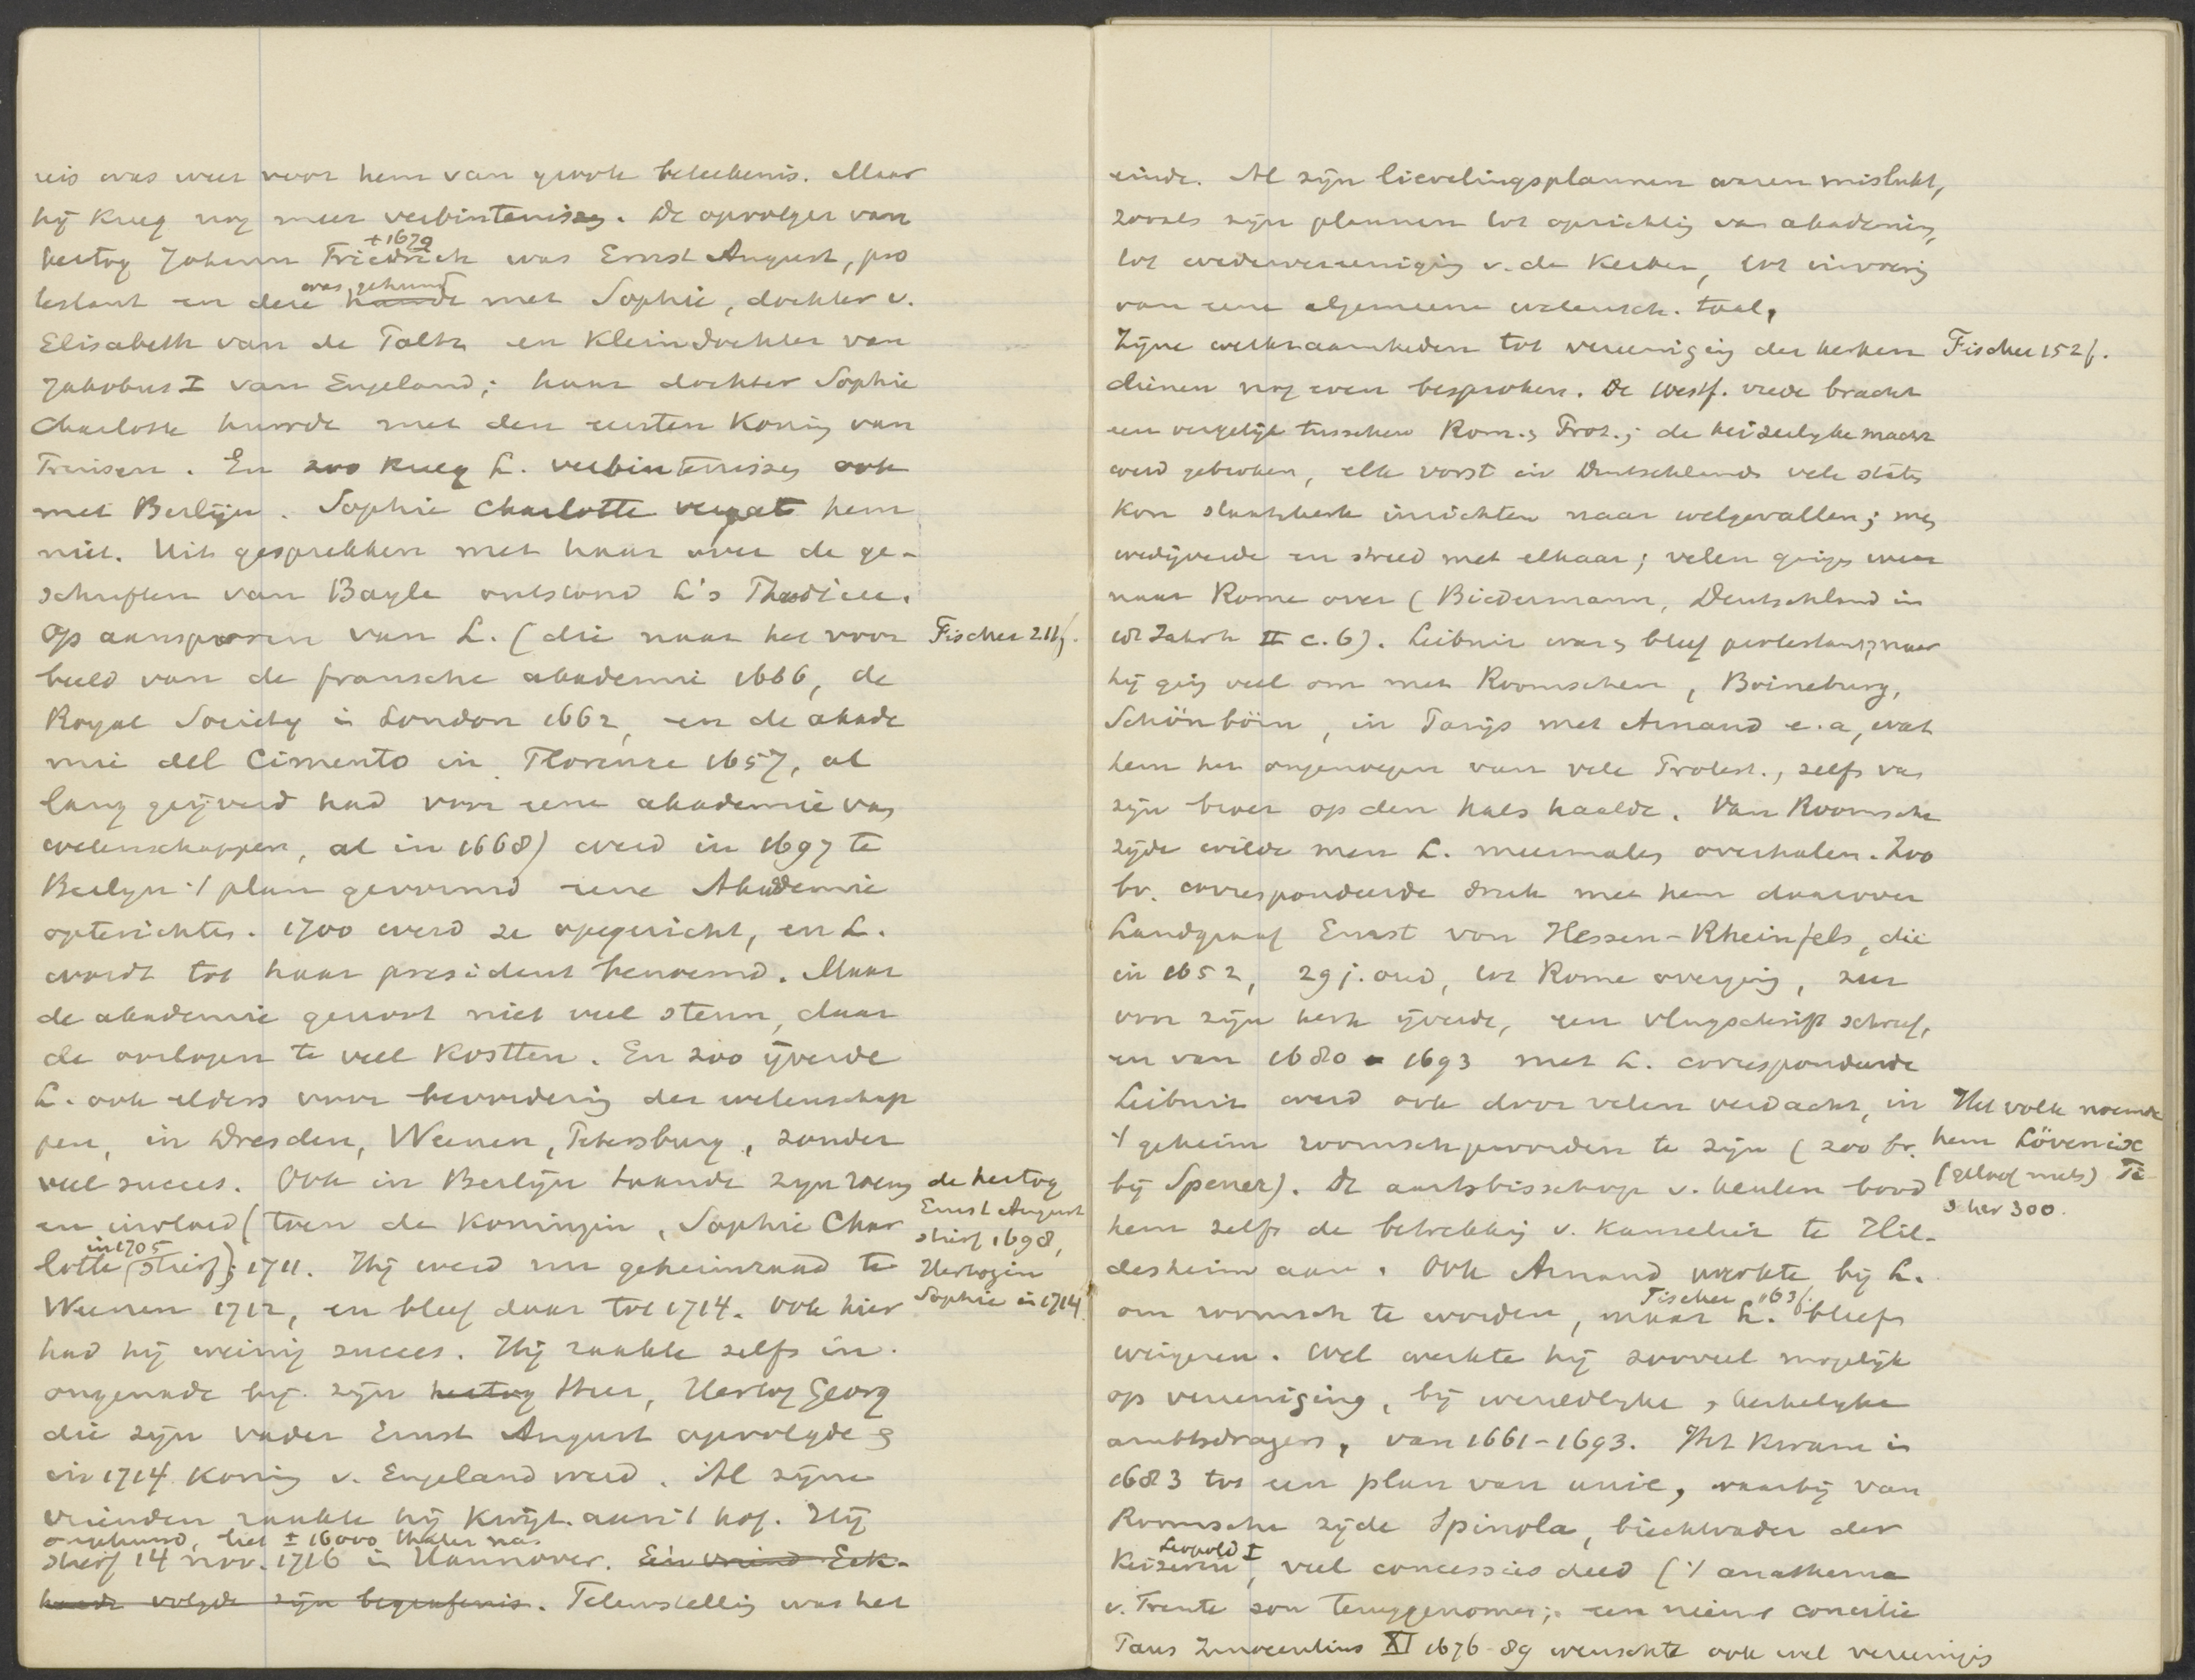 reis was weer voor hem van groote beteekenis. Maar
hij kreeg nog meer verbintenissen. De opvolger van
† 1679
hertog Johann Friedrich was Ernst August, pro
was gehuwd
testant en deze huwde met Sophie, dochter v.
Elisabeth van de Paltz en kleindochter van
Jakobus I van Engeland; haar dochter Sophie
Charlotte huwde met den eersten Koning van
Pruisen. En zoo kreeg L. verbintenissen ook
met Berlijn. Sophie Charlotte vergat hem
niet. Uit gesprekken met haar over de ge-
schriften van Bayle ontstond L's Theodicee.
Op aansporen van L. (die naar het voor Fischer 211f.
beeld van de fransche akademie 1666, de
Royal Society in London 1662, en de akade
mie del Cimento in Florence 1657, al
lang geijverd had voor eene akademie van
wetenschappen, al in 1668) werd in 1697 te
Berlijn 't plan gevormd eene Akademie
opterichten. 1700 werd ze opgericht, en L.
wordt tot haar president benoemd. Maar
de akademie genoot niet veel steun, daar
de oorlogen te veel kostten. En zoo ijverde
L. ook elders voor bevordering der wetenschap
pen, in Dresden, Weenen, Petersburg, zonder
veel succes. Ook in Berlijn taande zijn roem de hertog
en invloed (toen de Koningin, Sophie Char Ernst August
stierf 1698,
in 1705
lotte stierf); 1711. Hij werd nu geheimraad te Hertogin
Weenen 1712, en bleef daar tot 1714. Ook hier Sophie in 1714.
had hij weinig succes. Hij raakte zelfs in
ongenade bij zijn hertog Heer, Hertog Georg
die zijn vader Ernst August opvolgde &
in 1714 Koning v. Engeland werd. Al zijne
vrienden raakte hij kwijt aan 't hof. Hij
ongehuwd, liet ± 16000 thaler na.
stierf 14 nov. 1716 in Hannover. Eén vriend Eck-
hardt volgde zijn begrafenis. Teleurstelling was het
einde. Al zijn lievelingsplannen waren mislukt,
zooals zijn plannen tot oprichting van akademies,
tot wedervereeniging v. de Kerken, tot invoering
van eene algemeene wetensch. taal.
Zijne werkzaamheden tot vereeniging der kerken Fischer 152f.
dienen nog even besproken. De Westf. vrede bracht
een vergelijk tusschen Rom. & Prot.; de keizerlijke macht
werd gebroken, elk vorst in Duitschlands vele staten
kon staatskerk inrichten naar welgevallen; men
wedijverde en streed met elkaar; velen gingen weer
naar Rome over (Biedermann, Deutschland in
18 Jahrh II c. 6). Leibniz was & bleef protestant; maar
hij ging veel om met Roomschen, Boineburg,
Schönborn, in Parijs met Arnaud e.a., wat
hem het ongenoegen van vele Protest., zelfs van
zijn broer op den hals haalde. Van Roomsche
zijde wilde men L. meermalen overhalen. Zoo
bv. correspondeerde druk met hem daarover
Landgraaf Ernst von Hessen-Rheinfels, die
in 1652, 29 j. oud, tot Rome overging, zeer
voor zijn kerk ijverde, een vlugschrift schreef,
en van 1680 - 1693 met L. correspondeerde
Leibniz werd ook door velen verdacht, in Het volk noemde
't geheim roomsch geworden te zijn (zoo bv. hem Lövenix
bij Spener). De aartsbisschop v. Keulen bood (gelooft niets) Fi-
scher 300.
hem zelfs de betrekking v. kanselier te Hil-
desheim aan. Ook Arnaud werkte bij L.
Fischer 163f.
om roomsch te worden, maar L. bleef
weigeren. Wel werkte hij zooveel mogelijk
op vereeniging, bij wereldlijke & kerkelijke
ambtsdragers, van 1661-1693. Het kwam in
1683 tot een plan van unie, waarbij van
Roomsche zijde Spinola, biechtvader der
Leopold I
Keizerin, veel concessies deed ('t anathema
v. Trente zou teruggenomen; een nieuw concilie
Paus Innocentius XI 1676-89 wenschte ook wel vereeniging